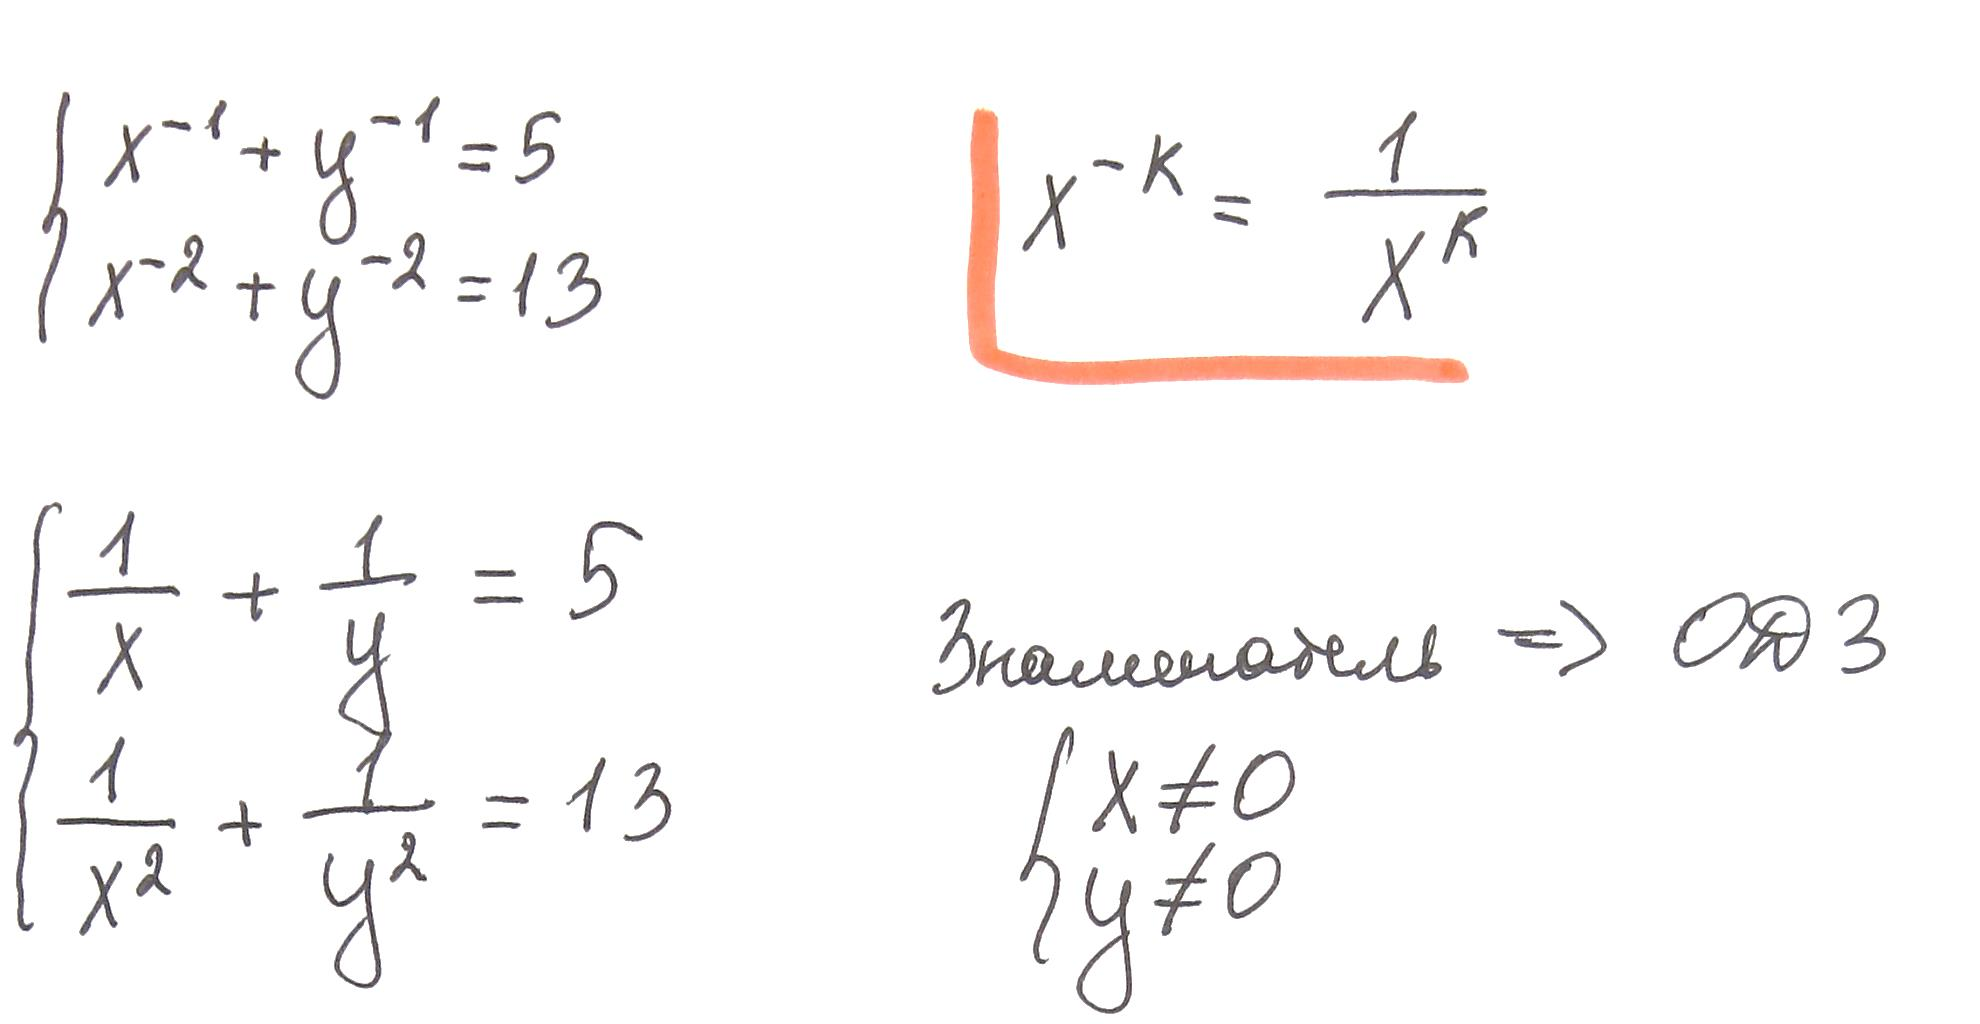 x⁻¹ + y⁻¹ = 5
x⁻² + y⁻² = 13
x⁻ᴷ = 1/xᴷ
1/x + 1/y = 5
1/x² + 1/y² = 13
Знаменатель => ОДЗ
x ≠ 0
y ≠ 0